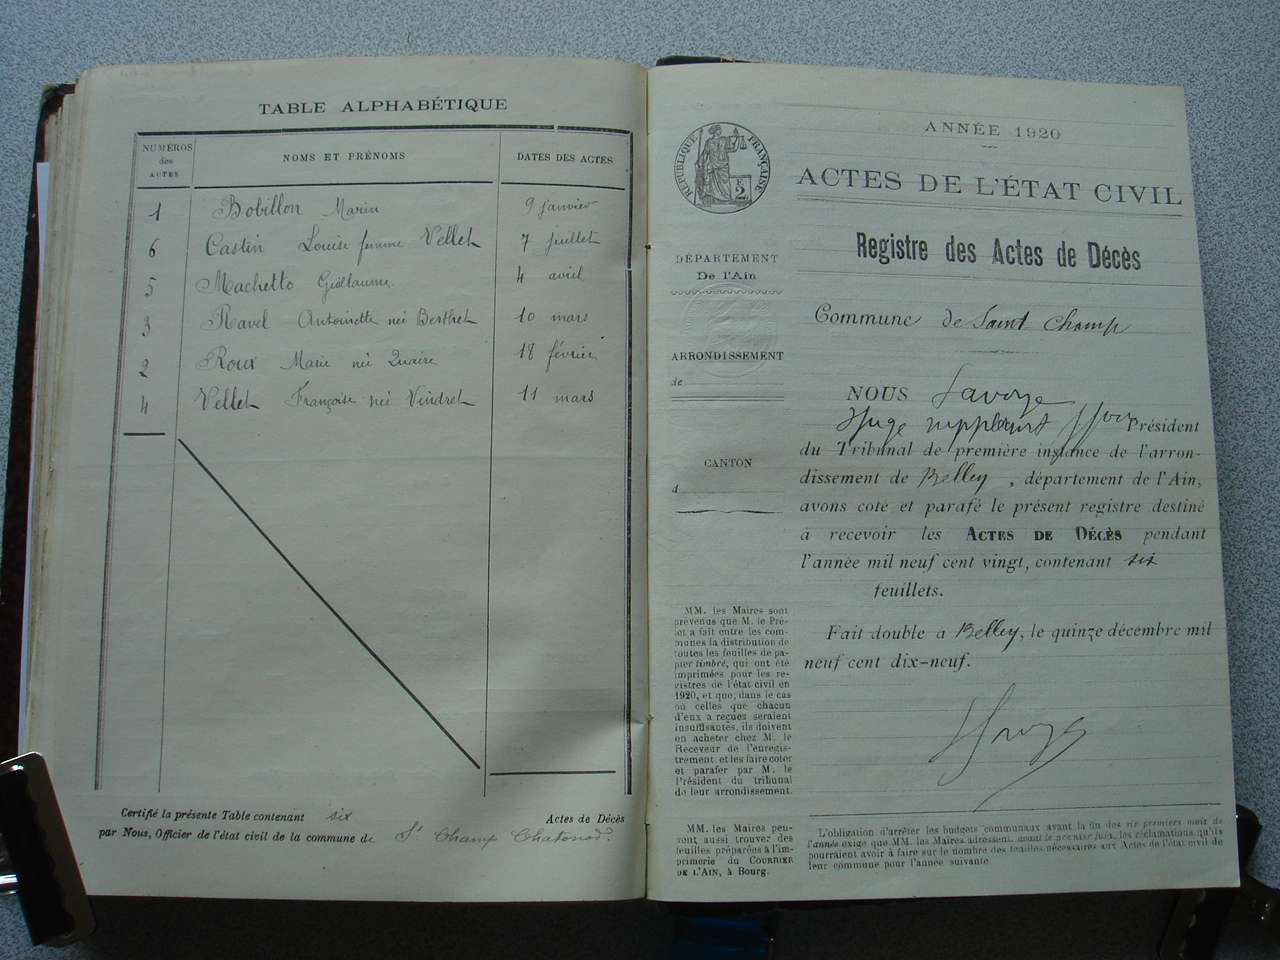 TABLE ALPHABÉTIQUE
NUMÉROS
des
ACTES
NOMS ET PRÉNOMS
DATES DES ACTES
1 Bobillon Marin 9 janvier
6 Castin Louise femme Vellet 7 juillet
5 Machetto Guillaume 4 avril
3 Ravel Antoinette née Berthet 10 mars
2 Roux Marie née 18 février
4 Vellet Françoise née Vindret 11 mars
Certifié la présente Table contenant six Actes de Décès
par Nous, Officier de l'état civil de la commune de St Champ Chatonod.
RÉPUBLIQUE FRANÇAISE
2
DÉPARTEMENT
De l'Ain
ARRONDISSEMENT
de
CANTON
d
MM. les Maires sont
prévenus que M. le Pré-
fet a fait entre les com-
munes la distribution de
toutes les feuilles de pa-
pier timbré, qui ont été
imprimées pour les re-
gistres de l'état civil en
1920, et que, dans le cas
où celles que chacun
d'eux a reçues seraient
insuffisantes, ils doivent
en acheter chez M. le
Receveur de l'enregis-
trement et les faire coter
et parafer par M. le
Président du tribunal
de leur arrondissement.
MM. les Maires peu-
vent aussi trouver des
feuilles préparées à l'im-
primerie du COURRIER
DE L'AIN, à Bourg.
ANNÉE 1920
ACTES DE L'ÉTAT CIVIL
Registre des Actes de Décès
Commune de Saint Champ
NOUS Savoye
Juge suppléant Président
du Tribunal de première instance de l'arron-
dissement de Belley, département de l'Ain,
avons coté et parafé le présent registre destiné
à recevoir les ACTES DE DÉCÈS pendant
l'année mil neuf cent vingt, contenant six
feuillets.
Fait double à Belley, le quinze décembre mil
neuf cent dix-neuf.
L'obligation d'arrêter les budgets communaux avant la fin des six premiers mois de
l'année exige que MM. les Maires adressent, avant le premier juin, les réclamations qu'ils
pourraient avoir à faire sur le nombre des feuilles nécessaires aux Actes de l'état civil de
leur commune pour l'année suivante